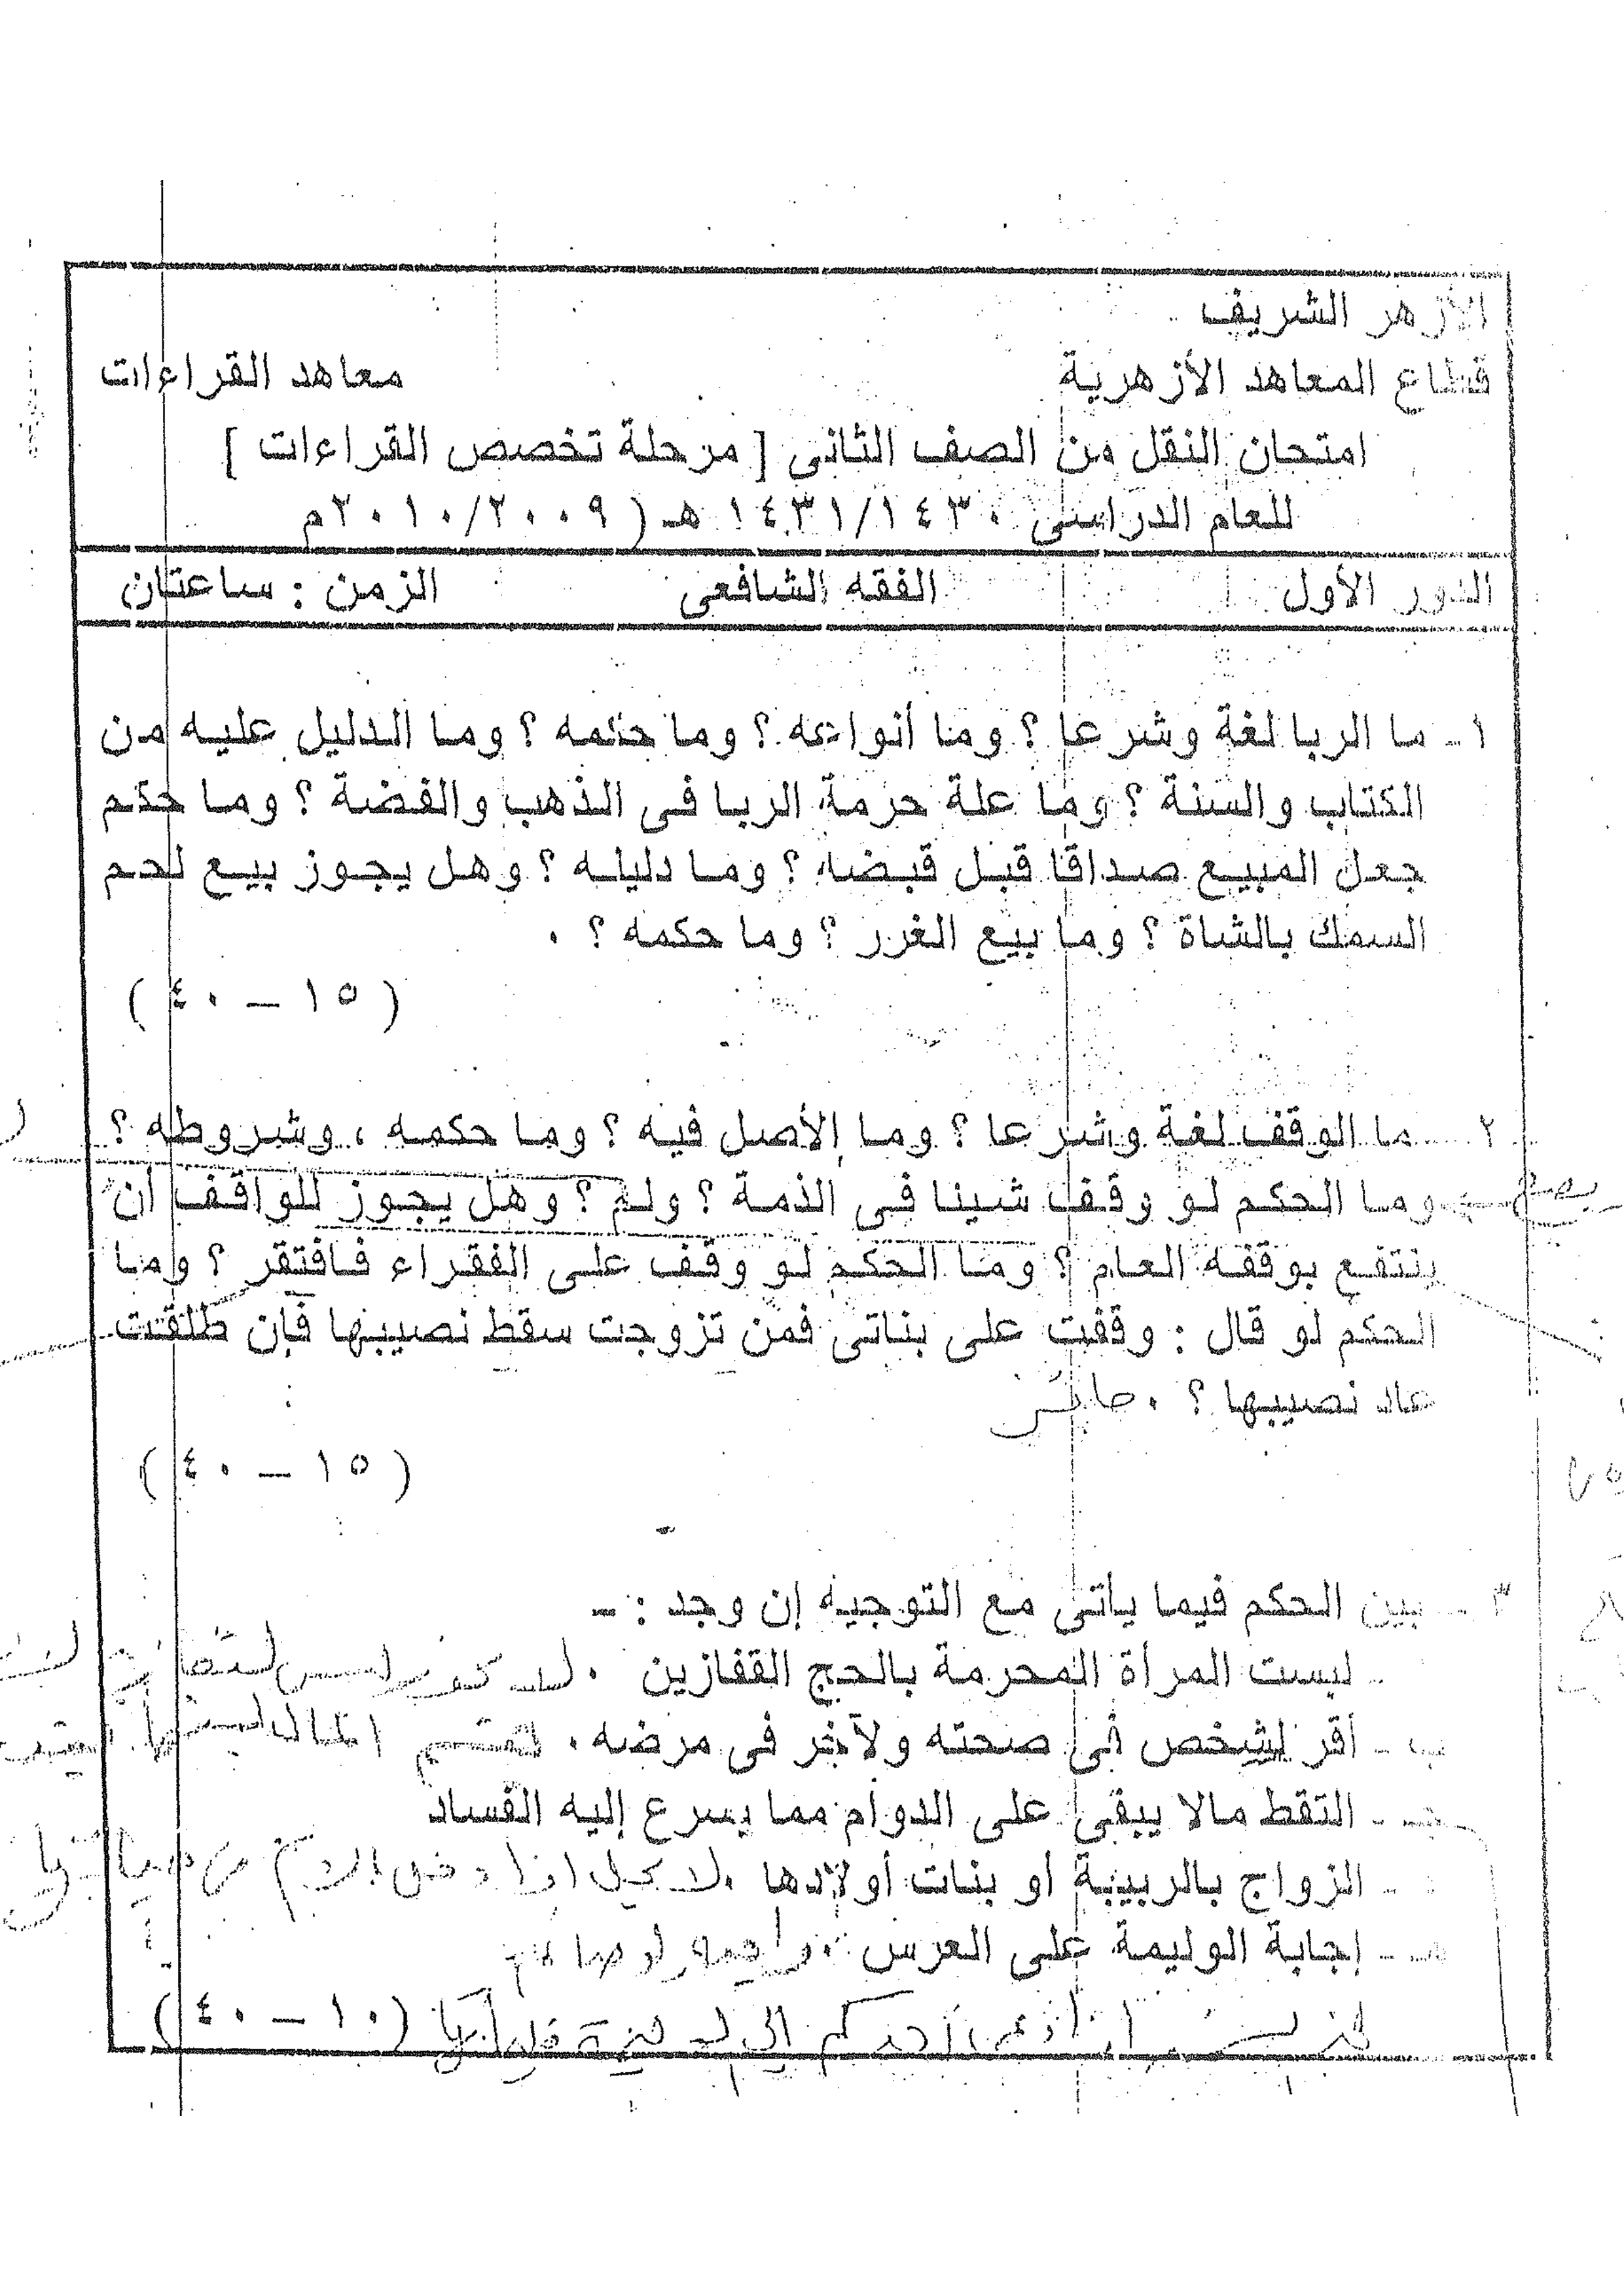 الأزهر الشريف
قطاع المعاهد الأزهرية معاهد القراءات
امتحان النقل من الصف الثانى [ مرحلة تخصص القراءات ]
للعام الدراسى ١٤٣١/١٤٣٠ هـ ( ٢٠١٠/٢٠٠٩م
الدور الأول الفقه الشافعى الزمن : ساعتان
١ - ما الربا لغة وشرعا ؟ وما أنواعه ؟ وما حكمه ؟ وما الدليل عليه من
الكتاب والسنة ؟ وما علة حرمة الربا فى الذهب والفضة ؟ وما حكم
جعل المبيع صداقا قبل قبضه ؟ وما دليله ؟ وهل يجوز بيع لحم
السمك بالشاة ؟ وما بيع الغرر ؟ وما حكمه ؟ .
( ١٥ – ٤٠ )
٢ - ما الوقف لغة وشرعا ؟ وما الأصل فيه ؟ وما حكمه ، وشروطه ؟
وما الحكم لو وقف شيئا فى الذمة ؟ ولم ؟ وهل يجوز للواقف أن
ينتفع بوقفه العام ؟ وما الحكم لو وقف على الفقراء فافتقر ؟ وما
الحكم لو قال : وقفت على بناتى فمن تزوجت سقط نصيبها فإن طلقت
عاد نصيبها ؟ . جائز
( ١٥ – ٤٠ )
٣ - بين الحكم فيما يأتى مع التوجيه إن وجد : -
لبست المرأة المحرمة بالحج القفازين .
ب - أقر لشخص فى صحته ولآخر فى مرضه .
جـ - التقط مالا يبقى على الدوام مما يسرع إليه الفساد
- الزواج بالربيبة أو بنات أولادها . لا يحل إذا دخل
هـ - إجابة الوليمة على العرس .
( ١٠ – ٤٠ )